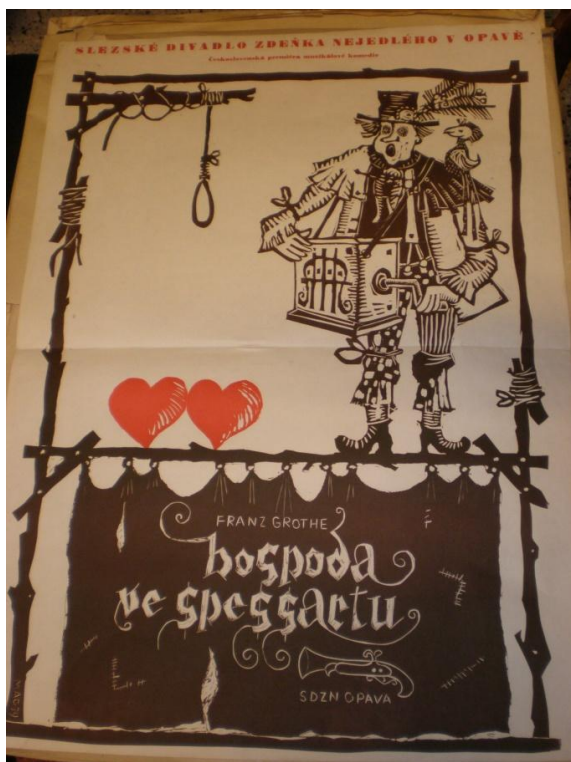 SLEZSKÉ DIVADLO ZDEŇKA NEJEDLÉHO V OPAVĚ
Československá premiéra muzikálové komedie
FRANZ GROTHE
hospoda
ve spessartu
SDZN OPAVA